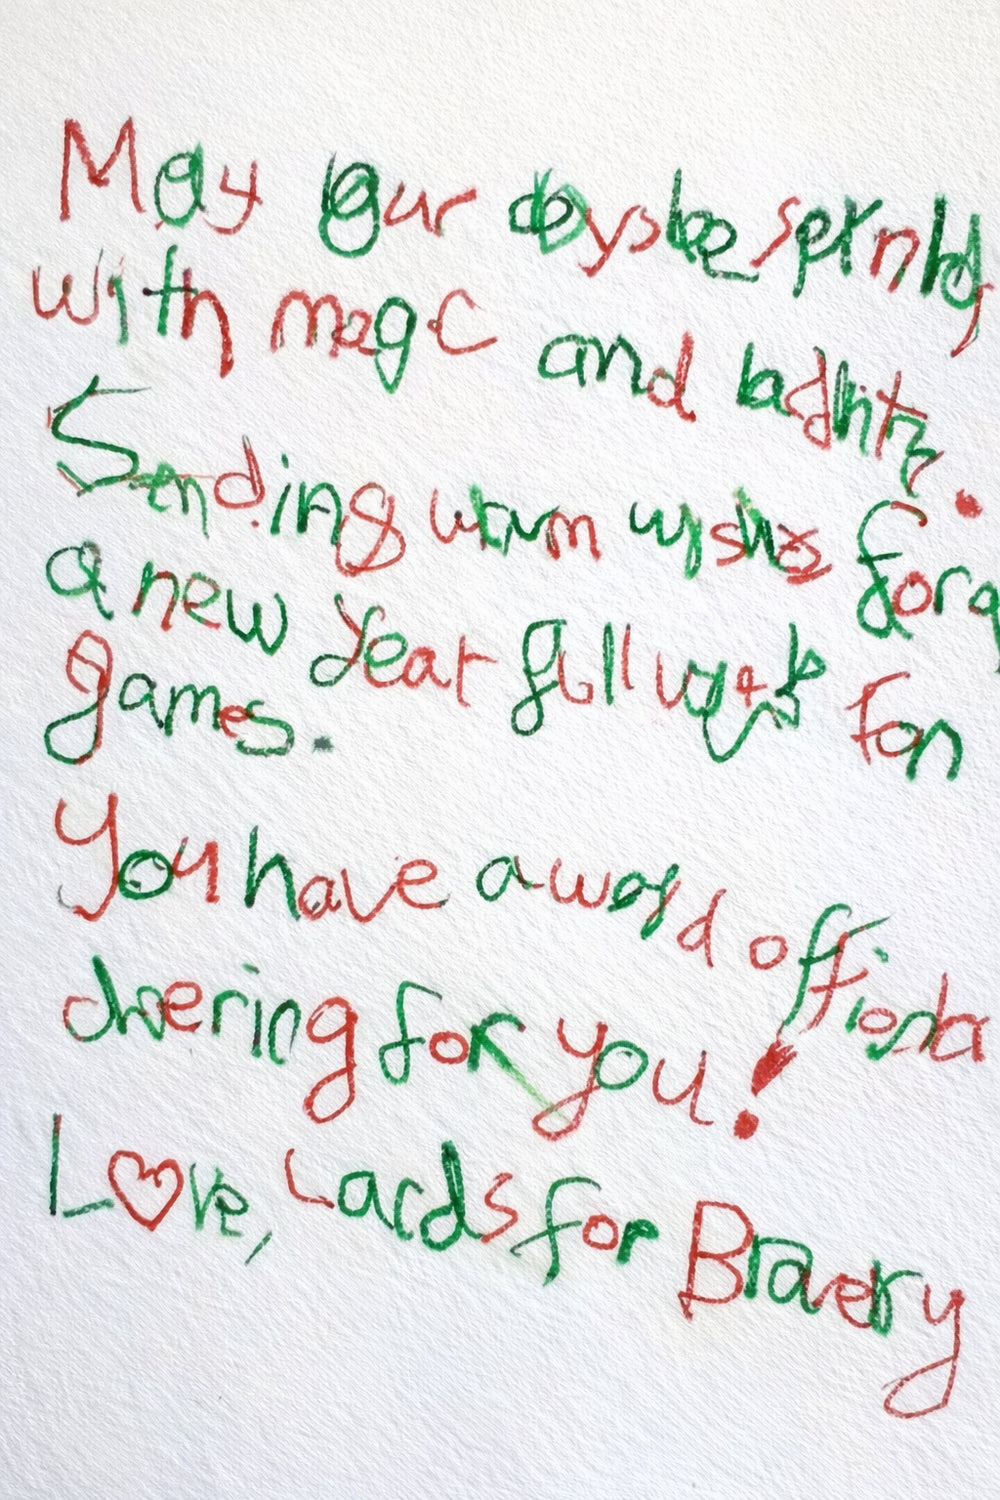 May our days be sprinkld
with magc and
Sending warm wishes for a
a new year full with fon
games.
You have a world of
cheering for you!
Love, Cards for Bravery